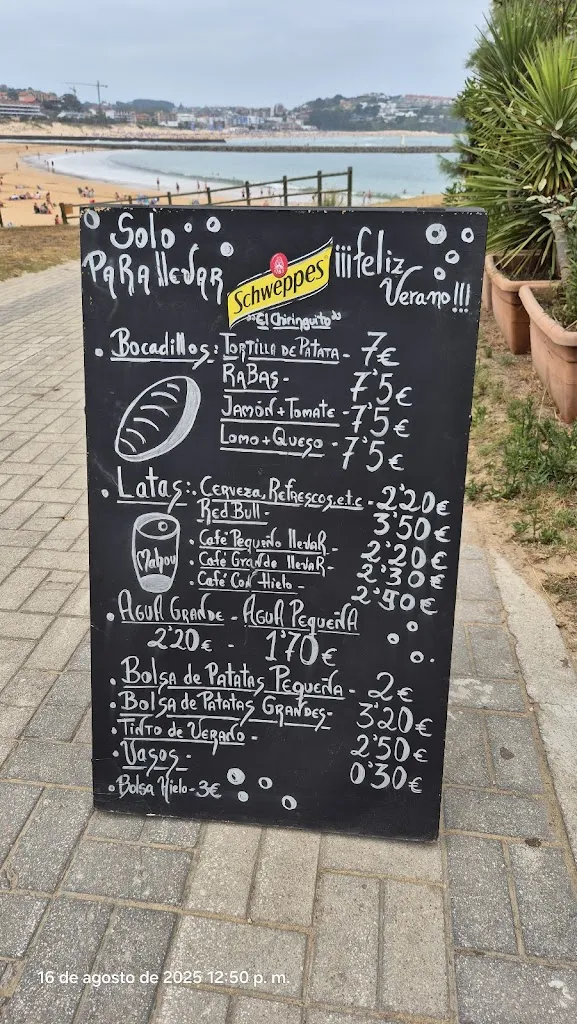 Solo
PARA llevar
Schweppes
¡¡¡feliz
Verano!!!
"El Chiringuito"
. Bocadillos: Tortilla de Patata - 7€
Rabas - 7'5€
Jamón + Tomate - 7'5€
Lomo + Queso - 7'5€
. Latas: . Cerveza, Refrescos, e.t.c - 2'20€
Red Bull - 3'50€
Mahou
. Café Pequeño llevar - 2'20€
. Café Grande llevar - 2'30€
. Café Con Hielo - 2'90€
. Agua Grande - Agua Pequeña
2'20€ - 1'70€
. Bolsa de Patatas Pequeña - 2€
. Bolsa de Patatas Grandes - 3'20€
. Tinto de Verano - 2'50€
. Vasos - 0'30€
. Bolsa Hielo - 3€
16 de agosto de 2025 12:50 p. m.